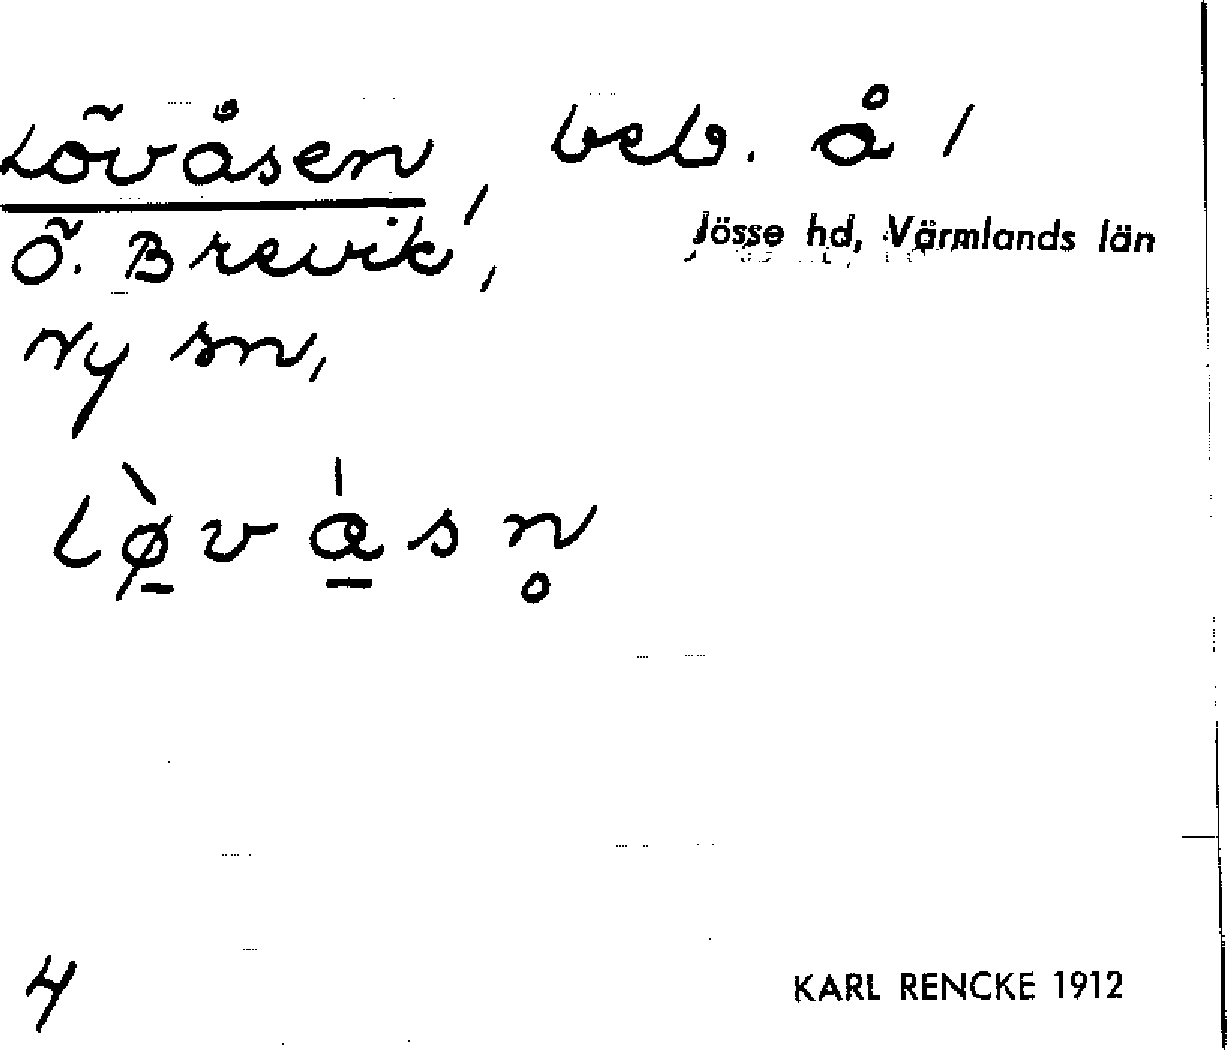 Lövåsen, beb. å /
Ö. Brevik,
Jösse hd, Värmlands län
Ny sn,
lø̠̀va̠̍sn̥
4
KARL RENCKE 1912